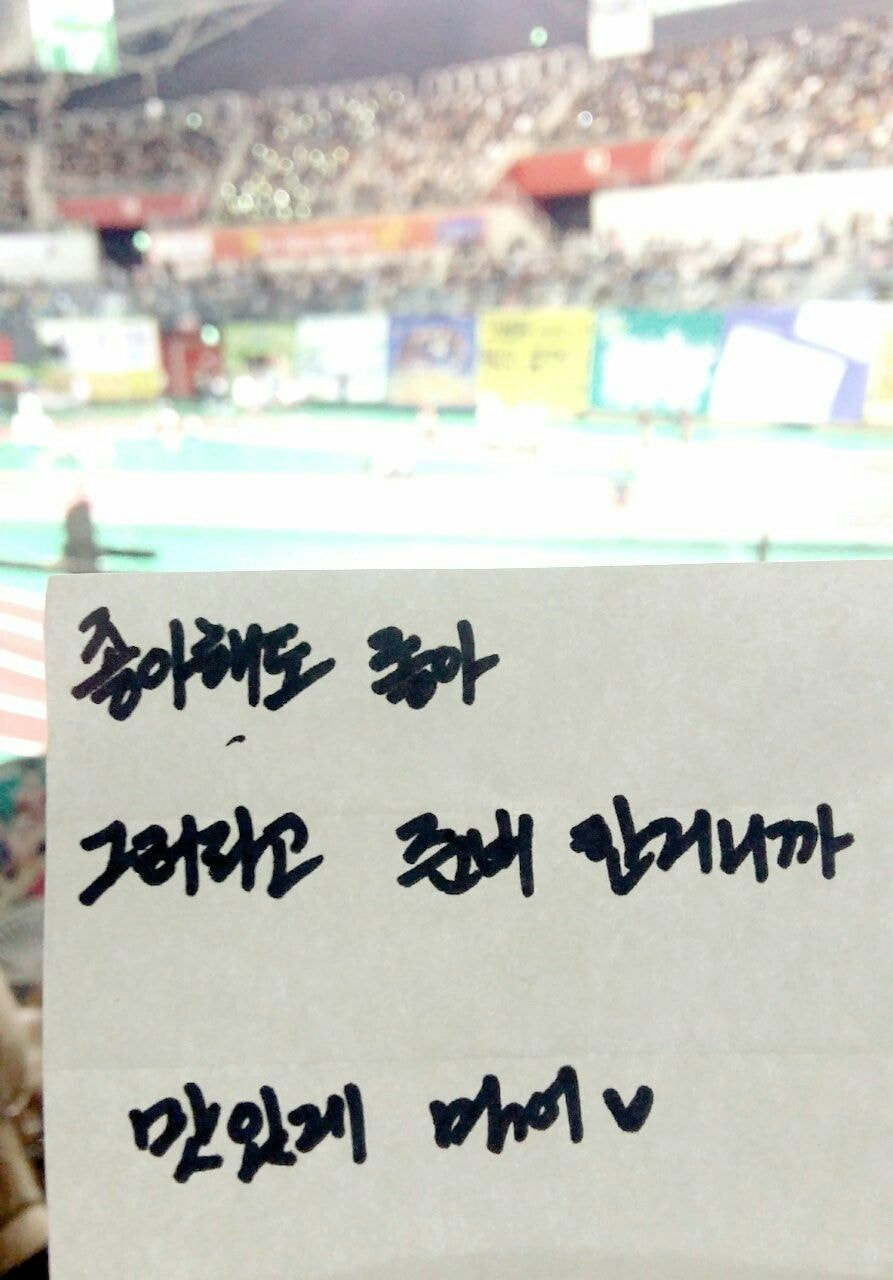 좋아해도 좋아
그러라고 준비 한거니까
맛있게 먹어♥